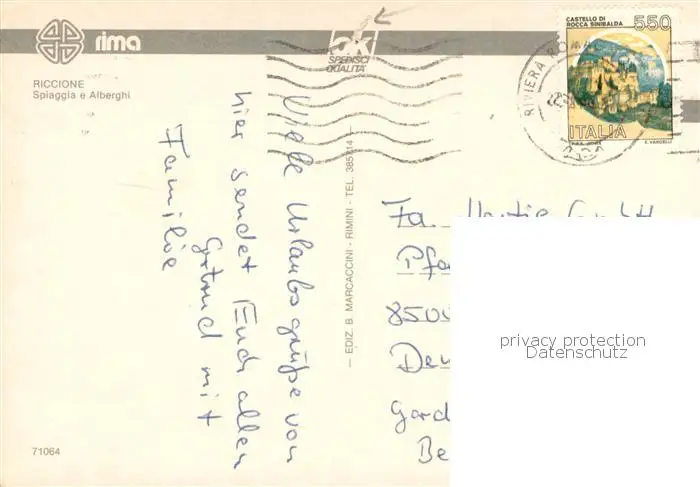 rima
RICCIONE
Spiaggia e Alberghi
OK
SPEDISCI
QUALITA'
CASTELLO DI
ROCCA SINIBALDA
550
ITALIA
RIVIERA ROMA
Viele Urlaubsgrüße von
hier sendet Euch allen
Gertrud mit
Familie
— EDIZ. B. MARCACCINI - RIMINI - TEL. 385714 —
Fa.
8500
71064
privacy protection
Datenschutz